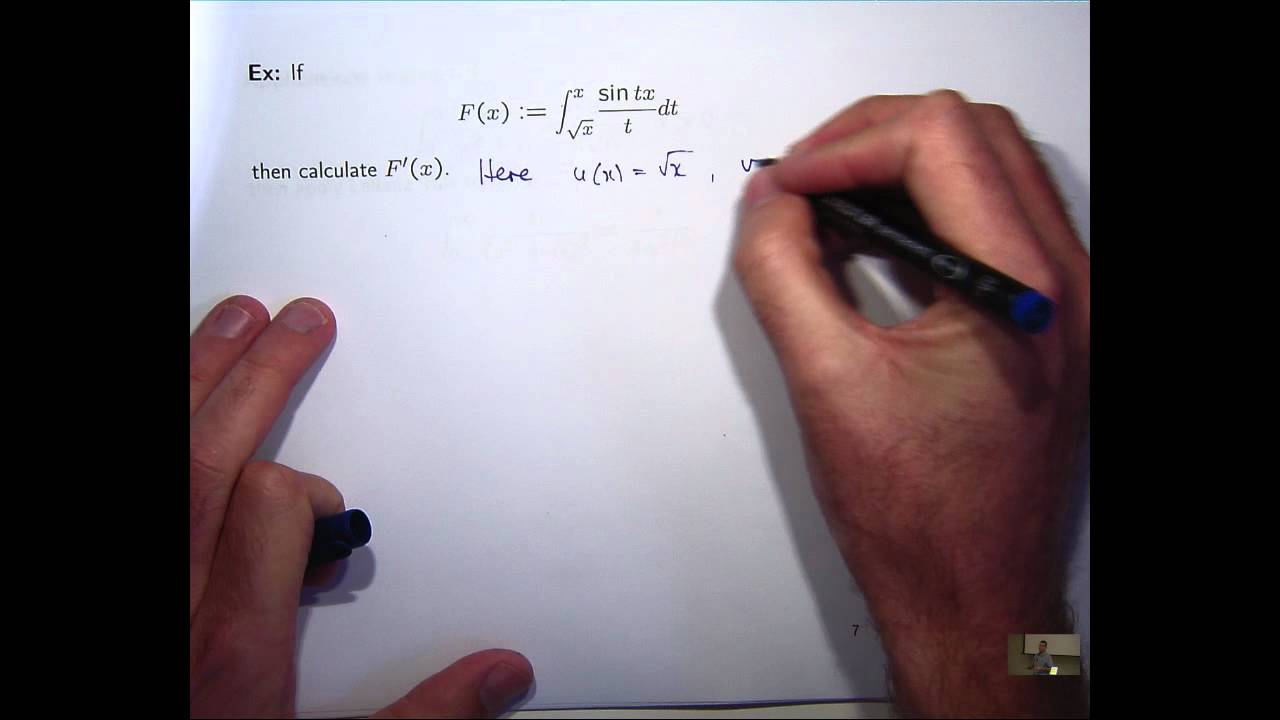 Ex: If
F(x) := ∫_{√x}^{x} \frac{sin tx}{t} dt
then calculate F′(x). Here u(x) = √x , v
7